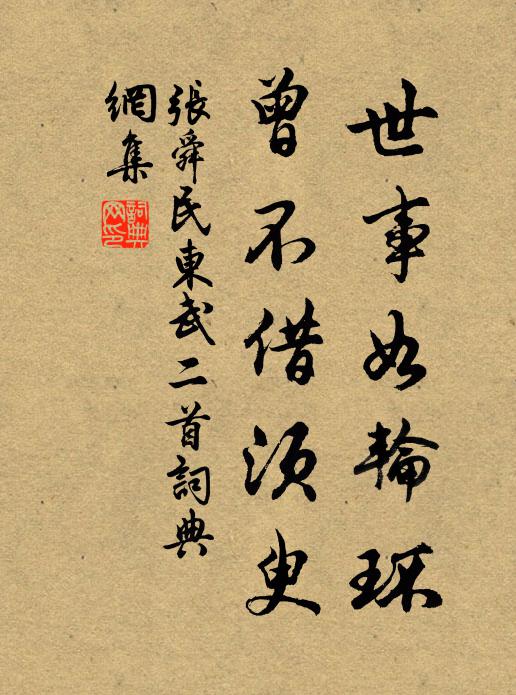 世事如輪環
曾不借須臾
張舜民東武二首詞典
網集
詞典
网印